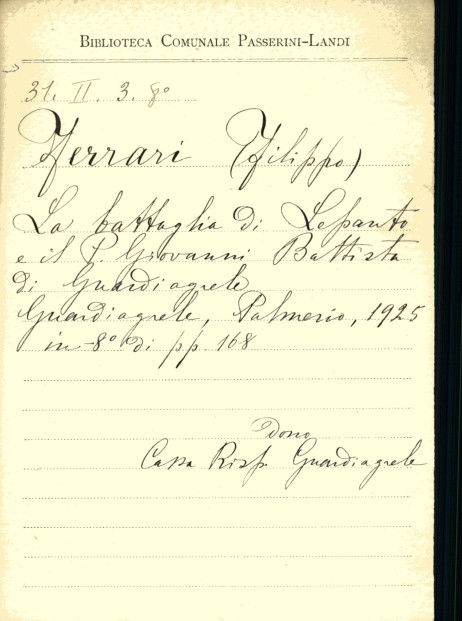 BIBLIOTECA COMUNALE PASSERINI-LANDI
31. II. 3. 8°
Ferrari (Filippo)
La battaglia di Lepanto
e il P. Giovanni Battista
di Guardiagrele
Guardiagrele, Palmerio, 1925
in-8° di pp. 168
Dono
Cassa Risp. Guardiagrele